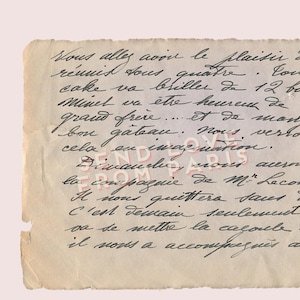 Vous allez avoir le plaisir d
réunis tous quatre. Tou
cake va briller de 12 bo
Minet va être heureux de
grand frère... et de man
bon gâteau. Nous verro
cela en imagination.
Dimanche nous aurons
la compagnie de Mr Leco
Il nous quittera sans
C'est demain seulement
va se mettre la cagoule
il nous a accompagnés a
SEND LOVE
FROM PARIS